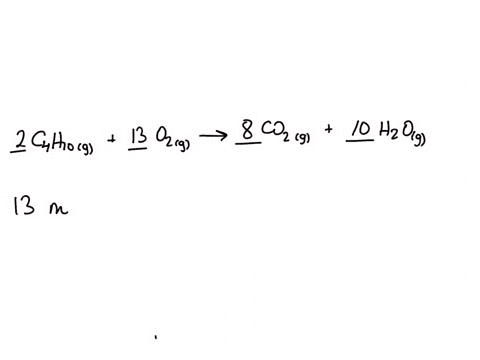 2 C4H10(g) + 13 O2(g) → 8 CO2(g) + 10 H2O(g)
13 m